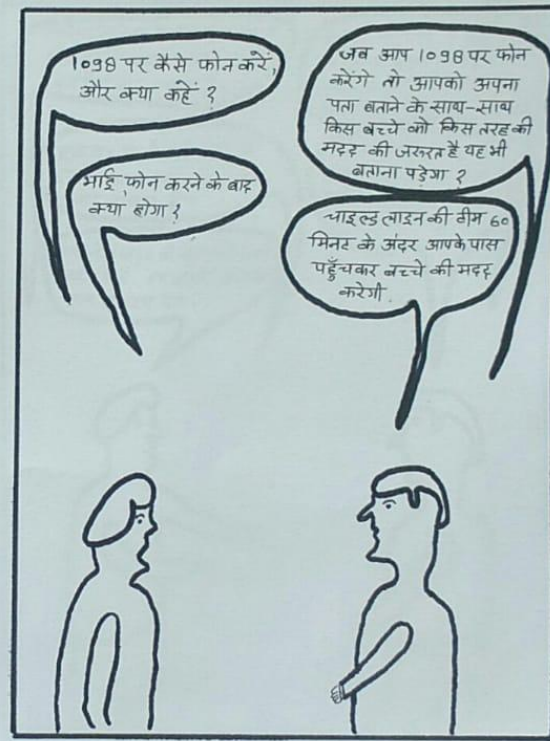 1098 पर कैसे फोन करें,
और क्या कहें ?
जब आप 1098 पर फोन
करेंगे तो आपको अपना
पता बताने के साथ-साथ
किस बच्चे को किस तरह की
मदद की जरुरत है यह भी
बताना पड़ेगा ?
भाई फोन करने के बाद
क्या होगा ?
चाइल्ड लाइन की टीम 60
मिनट के अंदर आपके पास
पहुँचकर बच्चे की मदद
करेगी.